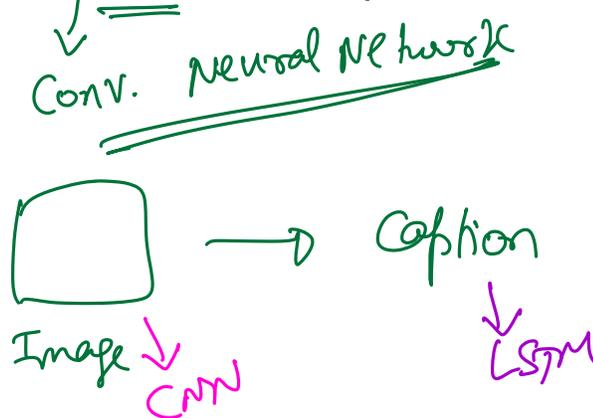 Conv. Neural Network
Caption
Image
CNN
LSTM